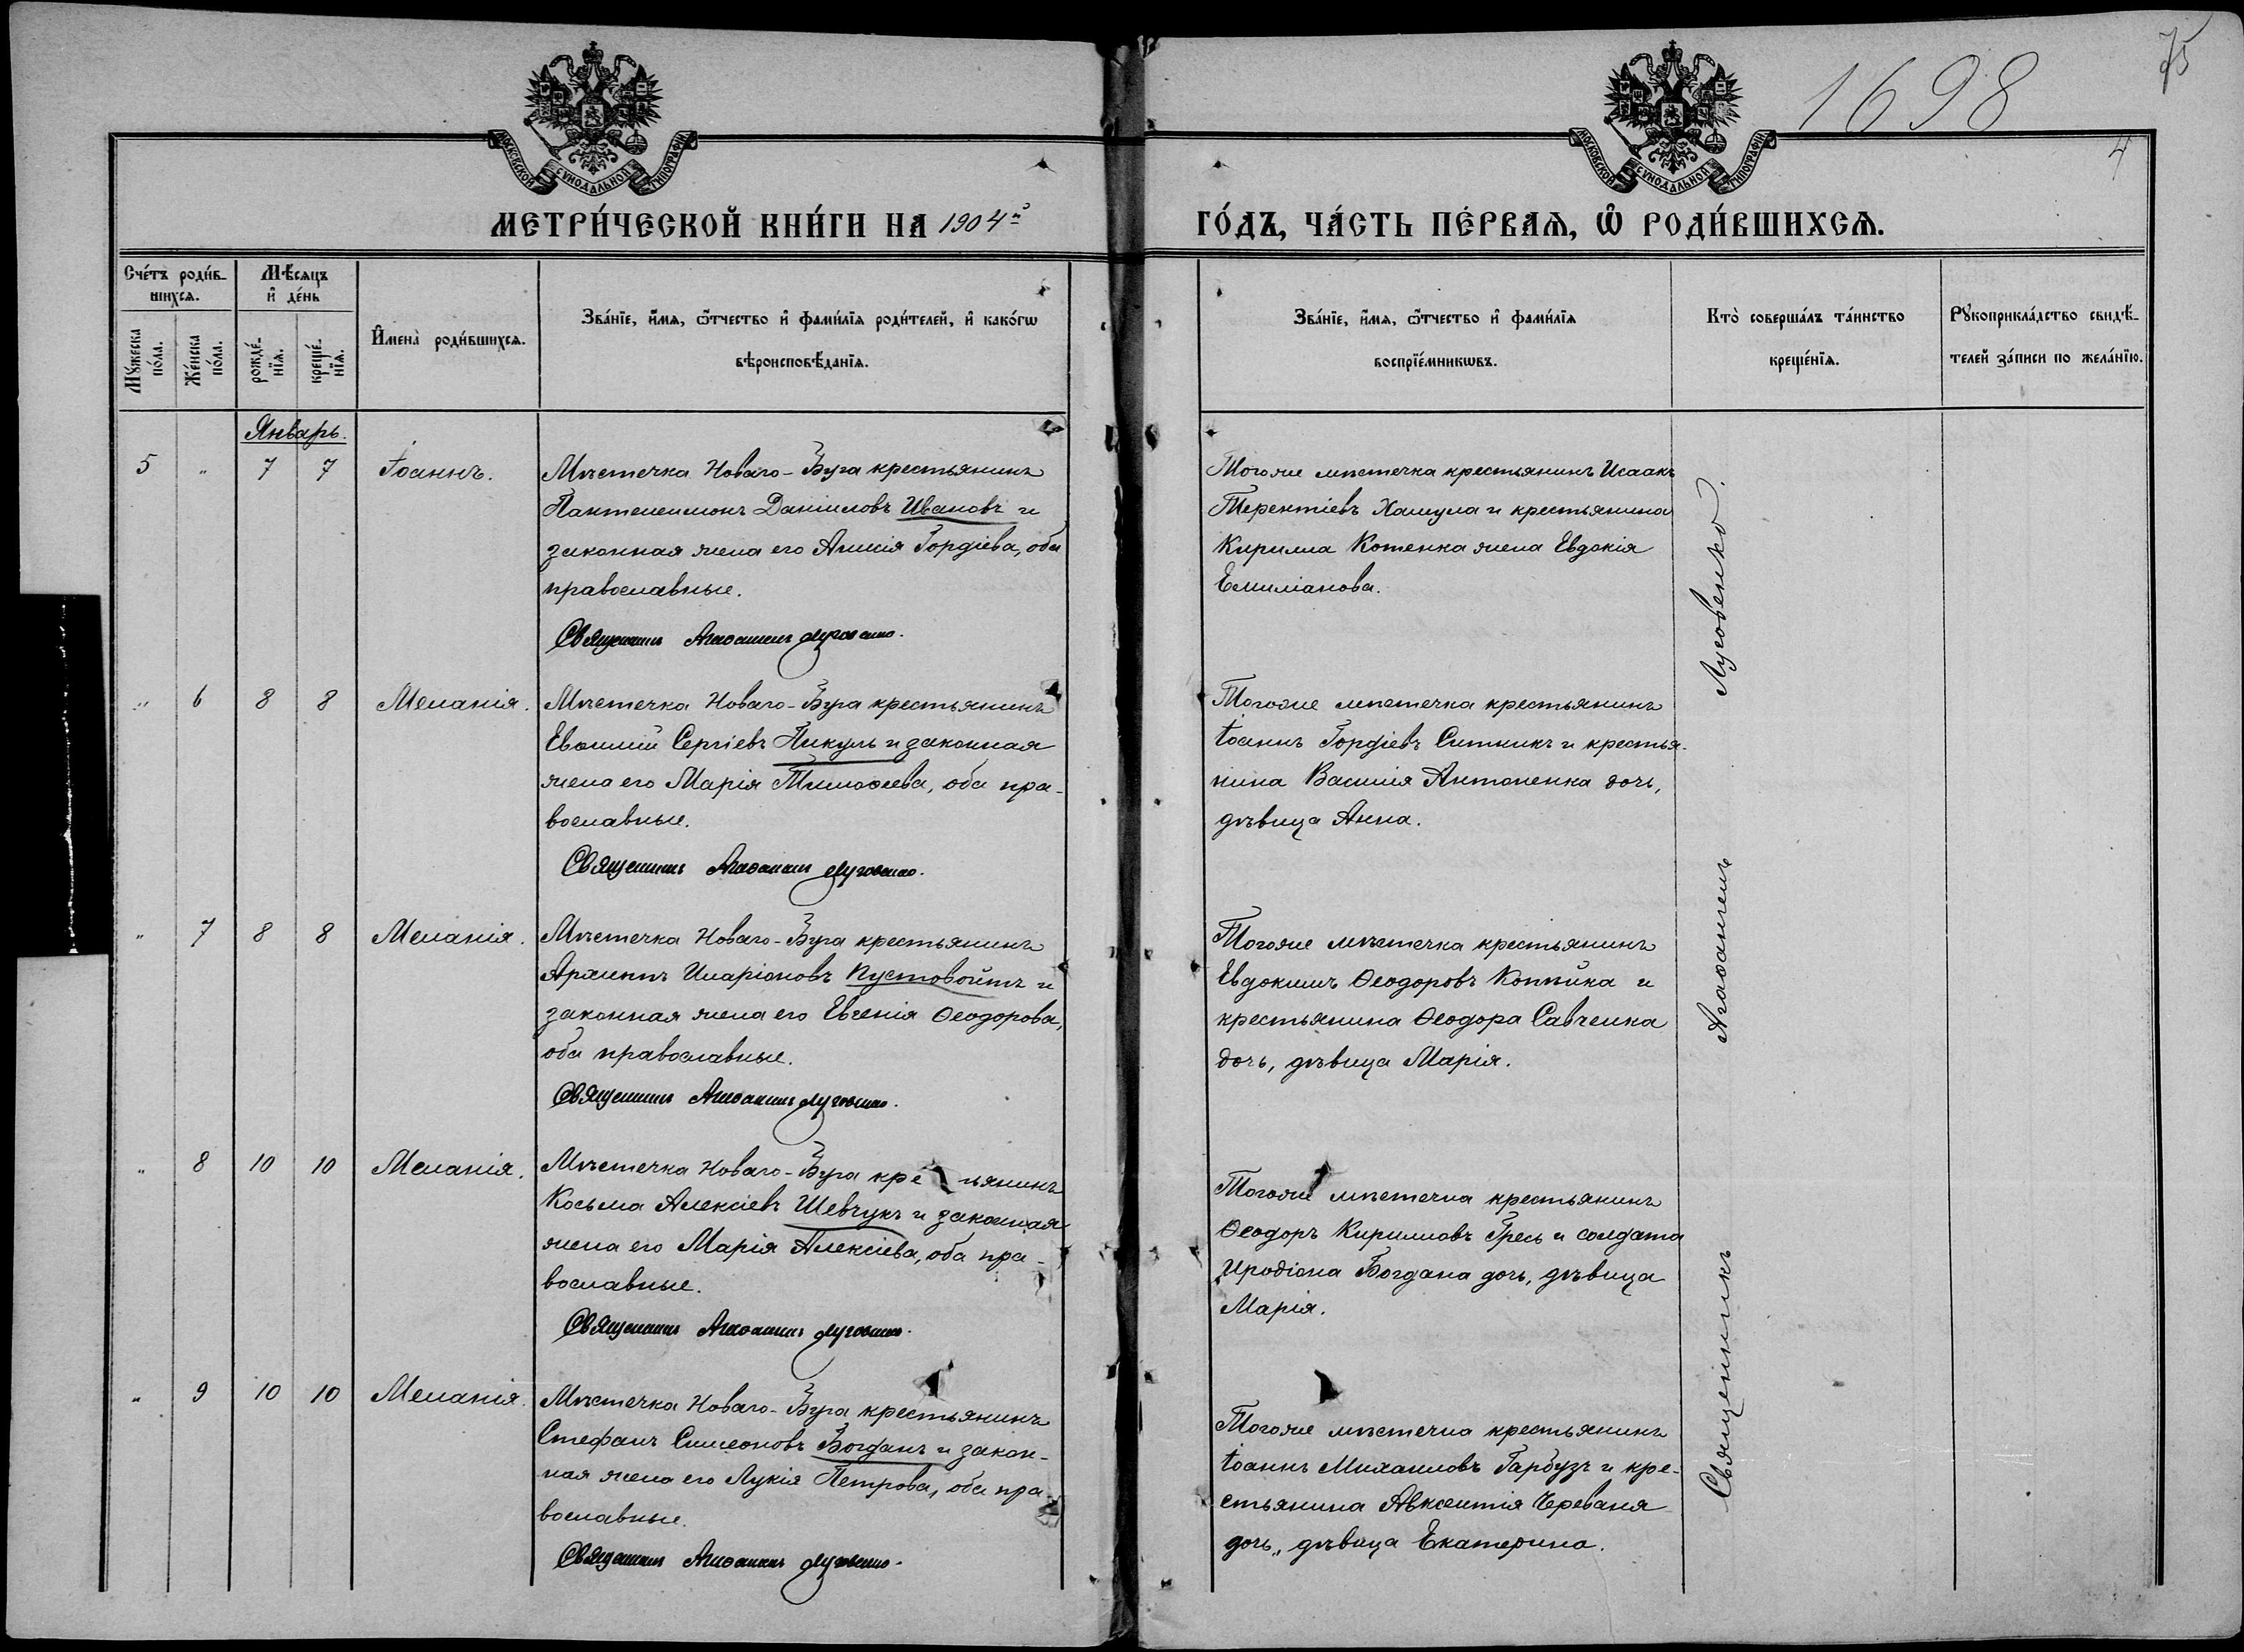 1698
75
4
МОСКОВСКОЙ СѴНОДАЛЬНОЙ ТИПОГРАФІИ
МОСКОВСКОЙ СѴНОДАЛЬНОЙ ТИПОГРАФІИ
МЕТРИ́ЧЕСКОЙ КНИ́ГИ НА 1904й ГО́ДЪ, ЧА́СТЬ ПЕ́РВАѦ, Ѡ РОДИ́ВШИХСѦ.
Сче́тъ роди́в-
шихсѧ.
Мѣ́сѧцъ
и҆ де́нь
Мꙋ́жеска по́ла.
Же́нска по́ла.
рожде́-нїѧ.
креще́-нїѧ.
И҆мена̀ роди́вшихсѧ.
Зва́нїе, и҆́мѧ, ѻ҆́тчество и҆ фами́лїѧ роди́телей, и҆ како́гѡ
вѣроисповѣ́данїѧ.
Зва́нїе, и҆́мѧ, ѻ҆́тчество и҆ фами́лїѧ
воспрїе́мникѡвъ.
Кто̀ соверша́лъ та́инство
креще́нїѧ.
Рꙋкоприкла́дство свидѣ́-
телей за́писи по жела́нїю.
Январь.
5 " 7 7 Іоаннъ.
Мѣстечка Новаго-Буга крестьянинъ
Пантелеимонъ Даніиловъ Ивановъ и
законная жена его Анисія Гордіева, оба
православные.
Священникъ Агаѳангелъ Луговенко.
Того же мѣстечка крестьянинъ Исаакъ
Терентіевъ Хамула и крестьянина
Кирилла Котенка жена Евдокія
Емиліанова.
" 6 8 8 Меланія.
Мѣстечка Новаго-Буга крестьянинъ
Евѳимій Сергіевъ Пикуль и законная
жена его Марія Тимоѳеева, оба пра-
вославные.
Священникъ Агаѳангелъ Луговенко.
Того же мѣстечка крестьянинъ
Іоаннъ Гордіевъ Ситникъ и крестья-
нина Василія Антоненка дочь,
дѣвица Анна.
" 7 8 8 Меланія.
Мѣстечка Новаго-Буга крестьянинъ
Архиппъ Иларіоновъ Пустовойтъ и
законная жена его Евгенія Ѳеодорова,
оба православные.
Священникъ Агаѳангелъ Луговенко.
Того же мѣстечка крестьянинъ
Евдокимъ Ѳеодоровъ Копѣйка и
крестьянина Ѳеодора Савченка
дочь, дѣвица Марія.
" 8 10 10 Меланія.
Мѣстечка Новаго-Буга кре ьянинъ
Косьма Алексіевъ Шевчукъ и законная
жена его Марія Алексіева, оба пра-
вославные.
Священникъ Агаѳангелъ Луговенко.
Того же мѣстечка крестьянинъ
Ѳеодоръ Кирилловъ Гресь и солдата
Иродіона Богдана дочь, дѣвица
Марія.
" 9 10 10 Меланія.
Мѣстечка Новаго-Буга крестьянинъ
Стефанъ Симеоновъ Богданъ и закон-
ная жена его Лукія Петрова, оба пра-
вославные.
Священникъ Агаѳангелъ Луговенко.
Того же мѣстечка крестьянинъ
Іоаннъ Михаиловъ Гарбузъ и кре-
стьянина Авксентія Череваня
дочь, дѣвица Екатерина.
Священникъ Агаѳангелъ Луговенко.